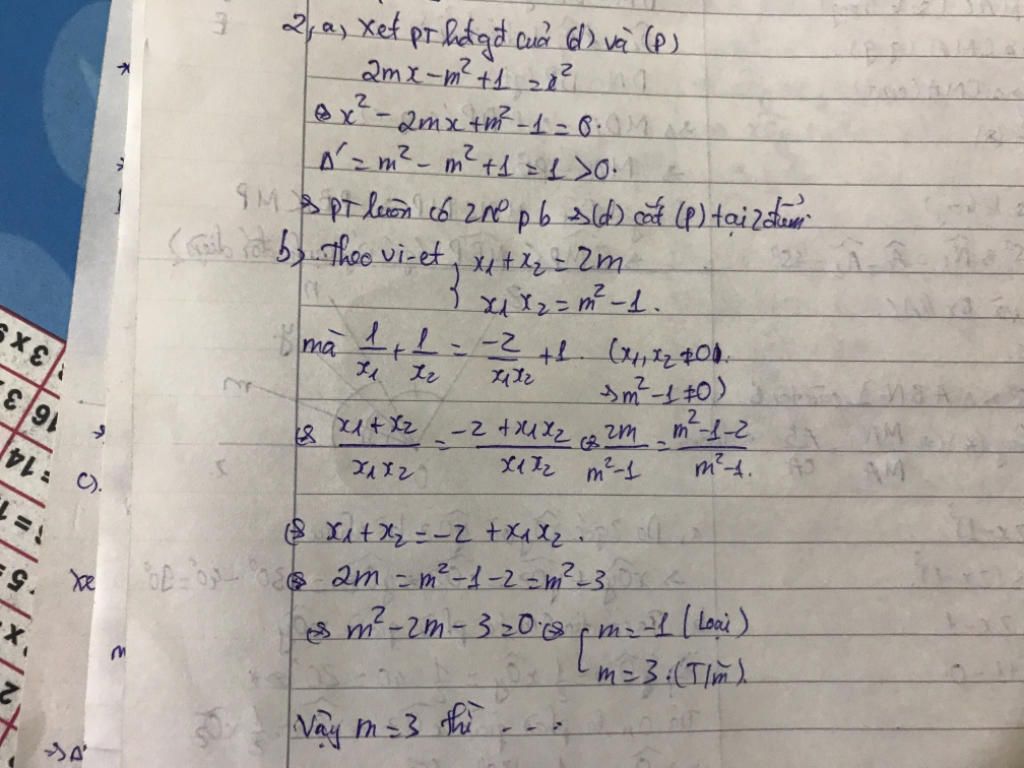 2, a, xét pt hđgđ của (d) và (p)
2mx - m² + 1 = x²
⇔ x² - 2mx + m² - 1 = 0.
Δ' = m² - m² + 1 = 1 > 0.
⇒ PT luôn có 2 n⁰ pb ⇒ (d) cắt (p) tại 2 điểm.
b, Theo vi-et { x1 + x2 = 2m
x1 x2 = m² - 1.
mà 1/x1 + 1/x2 = -2/x1x2 + 1. (x1, x2 ≠ 0).
⇒ m² - 1 ≠ 0)
⇔ x1 + x2/x1x2 = -2 + x1x2/x1x2 ⇔ 2m/m² - 1 = m² - 1 - 2/m² - 1.
c).
⇔ x1 + x2 = -2 + x1x2.
⇔ 2m = m² - 1 - 2 = m² - 3
⇔ m² - 2m - 3 = 0 ⇔ [ m = -1 (loại)
m = 3. (T/m).
Vậy m = 3 thì - - -
3 x 9
16 3
= 14
xe
m
⇒ Δ'